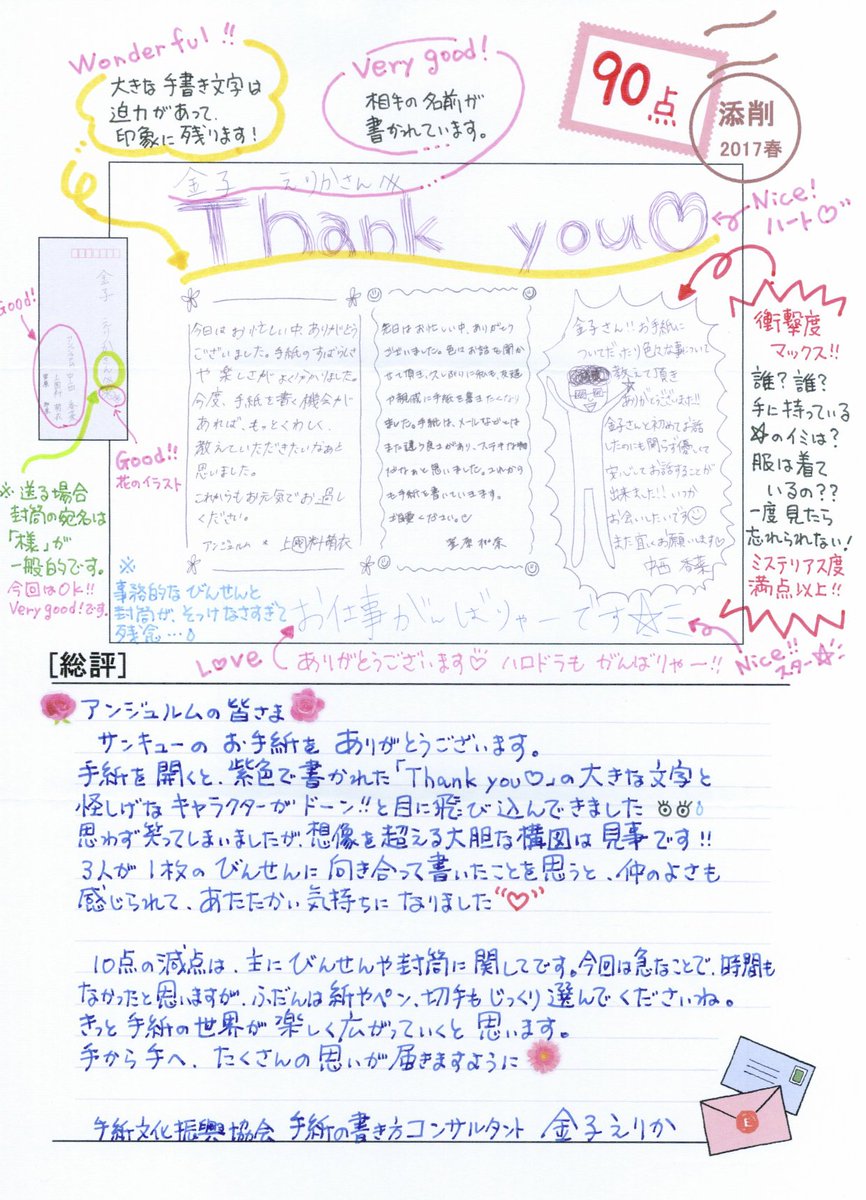 Wonderful!!
大きな手書き文字は
迫力があって、
印象に残ります!
Very good!
相手の名前が
書かれています。
90点
添削
2017春
金子 えりかさん
Thank you♡
Nice!
ハート♡
Good!
Good!!
花のイラスト
※送る場合
封筒の宛名は
「様」が
一般的です。
今回はOK!!
Very goodです。
今日はお忙しい中、ありがとう
ございました。手紙のすばらしさ
や楽しさがよく分かりました。
今度、手紙を書く機会が
あれば、もっとくわしく、
教えていただきたいなあと
思いました。
これからもお元気でお過し
ください。
アンジュルム 上國料萌衣
本日はお忙しい中、ありがとう
ございました。色々お話を聞か
せて頂き、久しぶりに私も、友達
や親戚に手紙を書きたくなり
ました。手紙は、メールなどとは
また違う良さがあり、ステキな物
だなぁと思いました。これから
も手紙を書いていきます。
笠原桃奈
金子さん!!お手紙に
ついてだったり色々な事について
教えて頂き
ありがとうございます!!
金子さんと初めてお話
したのにも関らず優しくて
安心してお話することが
出来ました!!いつか
お会いしたいです
また宜しくお願いします♡
中西香菜
衝撃度
マックス!!
誰?誰?
手に持っている
☆のイミは?
服は着て
いるの??
一度見たら
忘れられない!
ミステリアス度
満点以上!!
※
事務的なびんせんと
封筒が、そっけなさすぎて
残念…
お仕事がんばりゃーです☆
Love
ありがとうございます♡ ハロドラもがんばりゃー!!
Nice!!
スター☆
[総評]
アンジュルムの皆さま
サンキューのお手紙をありがとうございます。
手紙を開くと、紫色で書かれた「Thank you♡」の大きな文字と
怪しげなキャラクターがドーン!!と目に飛び込んできました
思わず笑ってしまいましたが、想像を超える大胆な構図は見事です!!
3人が1枚のびんせんに向き合って書いたことを思うと、仲のよさも
感じられて、あたたかい気持ちになりました♡
10点の減点は、主にびんせんや封筒に関してです。今回は急なことで、時間も
なかったと思いますが、ふだんは紙やペン、切手もじっくり選んでくださいね。
きっと手紙の世界が楽しく広がっていくと思います。
手から手へ、たくさんの思いが届きますように
手紙文化振興協会 手紙の書き方コンサルタント 金子えりか
E